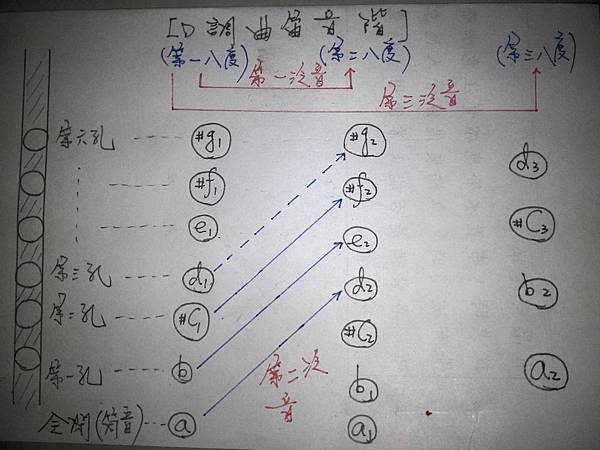 [D調曲笛音階]
(第一八度) (第二八度) (第三八度)
第一次音
第三次音
第六孔 #g1 #g2
d3
#f1 #f2
#C3
e1 e2
第三孔 d1 d2
b2
第二孔 #C1 #C2
第一孔 b b1
a2
第二次音
全閉(筒音) a a1